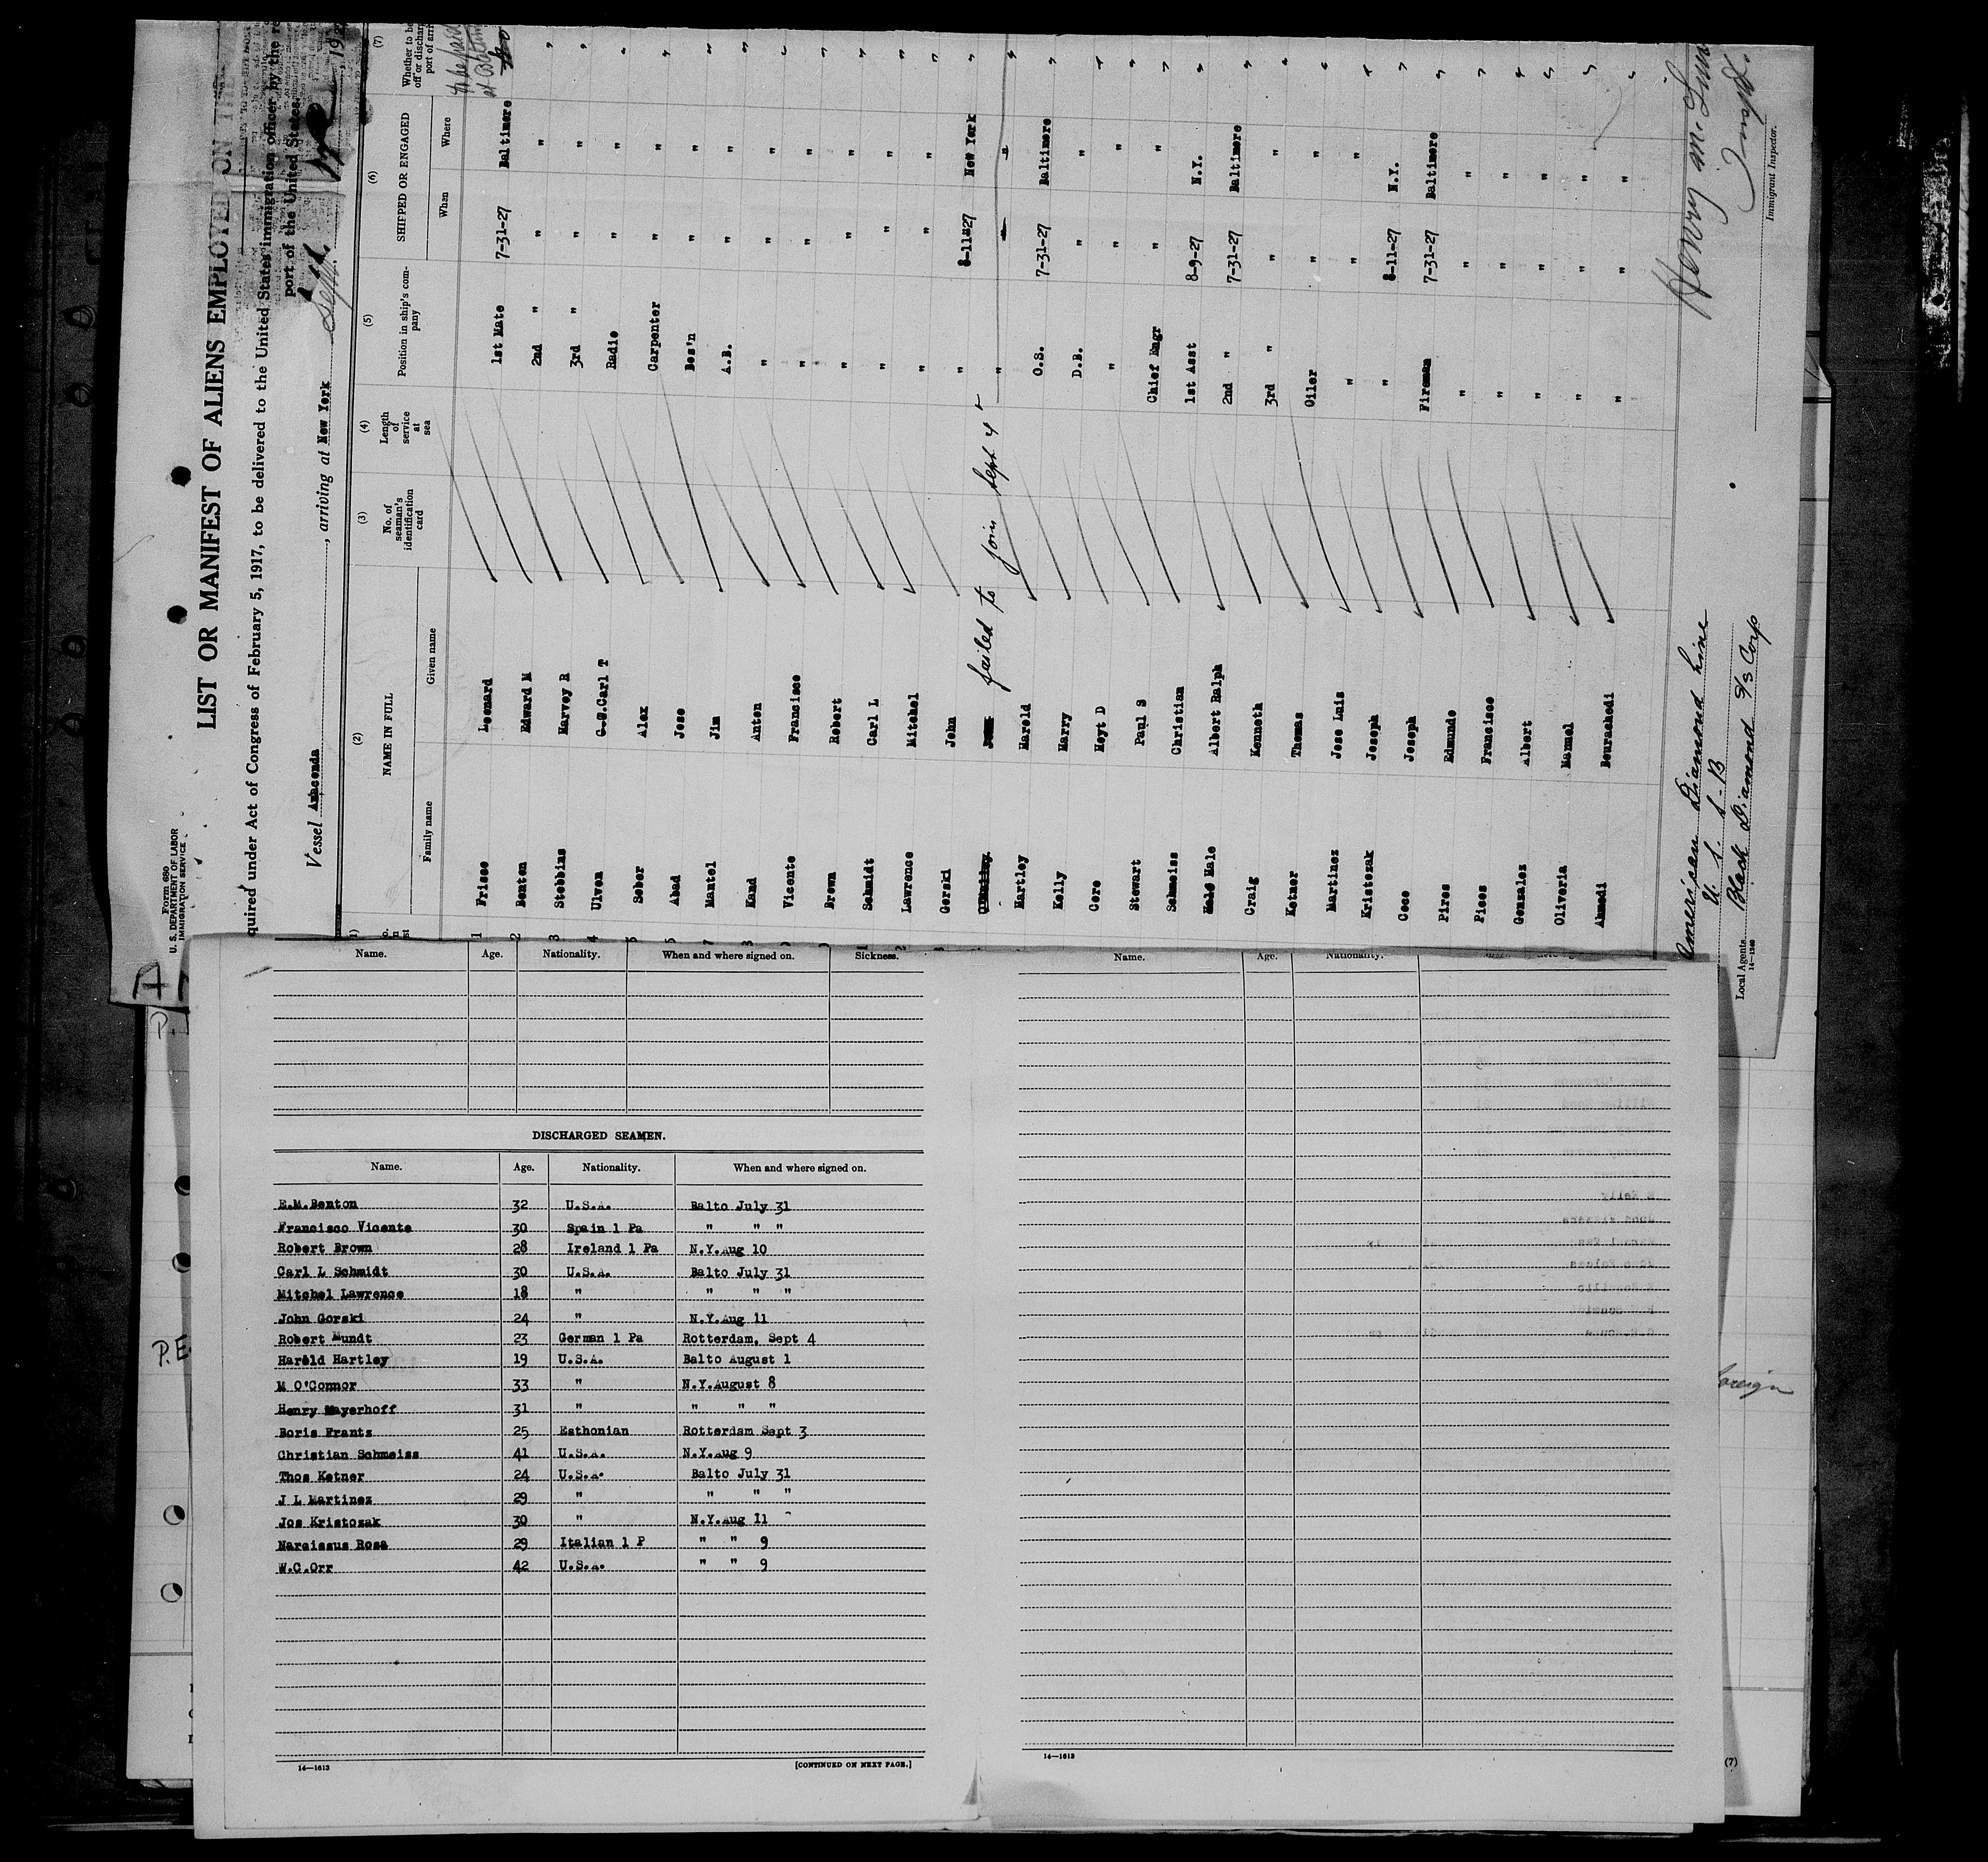 Form 680
U. S. DEPARTMENT OF LABOR
IMMIGRATION SERVICE
LIST OR MANIFEST OF ALIENS EMPLOYED ON THE
quired under Act of Congress of February 5, 1917, to be delivered to the United States immigration officer by the re
port of the United States.
Vessel Anaconda, arriving at New York Sept. 192
(2) (3) (4) (5) (6) (7)
NAME IN FULL No. of seaman's identification card Length of service at sea Position in ship's company SHIPPED OR ENGAGED Whether to be
off or dischar
port of arri
Family name Given name When Where
1 Frisce Leonard 1st Mate 7-31-27 Baltimore
2 Benton Edward M 2nd " " "
3 Stebbins Harvey R 3rd " " "
4 Ulven C.S.Carl T Radio " "
5 Seber Alex Carpenter " "
Abad Jose Bos'n " "
7 Mantel Jim A.B. " "
Kand Anton " " "
Vicente Francisco " " "
Brown Robert " " "
Schmidt Carl L " " "
Lawrence Mitchel " " "
Gorski John " 8-11-27 New York
failed to join Sept 4
Hartley Harold O.S. 7-31-27 Baltimore
Kelly Harry D.B. " "
Core Hoyt D " " "
Stewart Paul S Chief Engr " "
Schmeiss Christian 1st Asst 8-9-27 N.Y.
Hale Albert Ralph 2nd " 7-31-27 Baltimore
Craig Kenneth 3rd " " "
Ketner Thomas Oiler " "
Martinez Jose Luis " " "
Kristozak Joseph " 8-11-27 N.Y.
Coco Joseph Fireman 7-31-27 Baltimore
Pires Edmundo " " "
Picos Francisco " " "
Gonzalez Albert " " "
Oliveria Manuel " " "
Ahmedi Bourashedi " " "
American Diamond Line
U. S. S. B
Local Agents Black Diamond S/S Corp
14—1240
Immigrant Inspector.
Name. Age. Nationality. When and where signed on. Sickness.
Name. Age. Nationality.
DISCHARGED SEAMEN.
Name. Age. Nationality. When and where signed on.
E.M.Benton 32 U.S.A. Balto July 31
Francisco Vicente 30 Spain 1 Pa " " "
Robert Brown 28 Ireland 1 Pa N.Y.Aug 10
Carl L Schmidt 30 U.S.A. Balto July 31
Mitchel Lawrence 18 " " " "
John Gorski 24 " N.Y.Aug 11
Robert Mundt 23 German 1 Pa Rotterdam, Sept 4
Harold Hartley 19 U.S.A. Balto August 1
M O'Connor 33 " N.Y.August 8
Henry Mayerhoff 31 " " " "
Boris Frantz 25 Esthonian Rotterdam Sept 3
Christian Schmeiss 41 U.S.A. N.Y.Aug 9
Thos Ketner 24 U.S.A. Balto July 31
J L Martinez 29 " " " "
Jos Kristozak 30 " N.Y.Aug 11
Narcissus Rosa 29 Italian 1 P " " 9
W.C.Orr 42 U.S.A. " " 9
14—1613
[CONTINUED ON NEXT PAGE.]
14—1613
(7)
P.
P.E
foreign